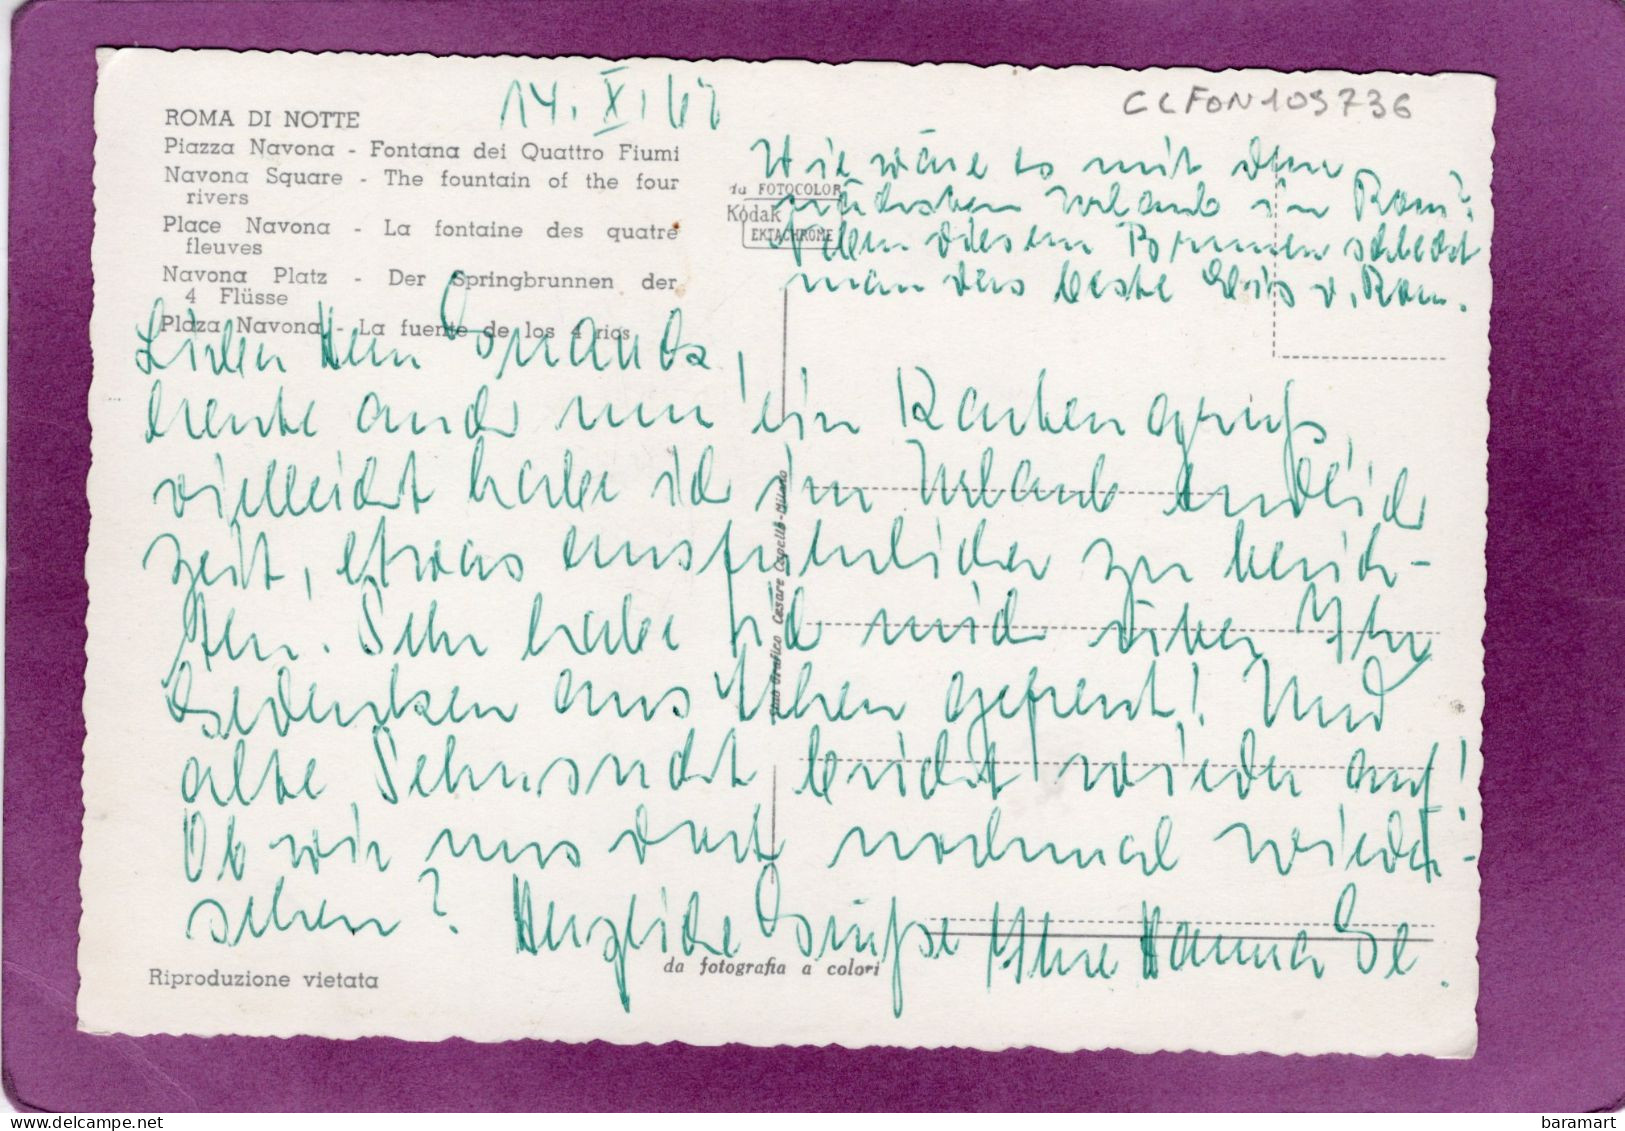 14. X. 61
CLFON109736
ROMA DI NOTTE
Piazza Navona - Fontana dei Quattro Fiumi
Navona Square - The fountain of the four
rivers
Place Navona - La fontaine des quatre
fleuves
Navona Platz - Der Springbrunnen der
4 Flüsse
Plaza Navona - La fuente de los 4 rios
da FOTOCOLOR
Kodak
EKTACHROME
Wie wäre es mit dem
nächsten Urlaub in Rom?
diesem Brunnen schleckt
man das beste Eis v. Rom.
Lieber Herr
heute auch nur ein Kartengruß,
vielleicht habe ich im Urlaub endlich
Zeit, etwas ausführlicher zu berich-
ten. Sehr habe ich mich über Ihr
Gedenken aus gefreut! Und
alte Sehnsucht bricht wieder auf!
Ob wir uns dort nochmal wieder-
sehen? Herzliche Grüße Ihre Hanna Ge.
Cesare Capello - Milano
Riproduzione vietata
da fotografia a colori
baramart